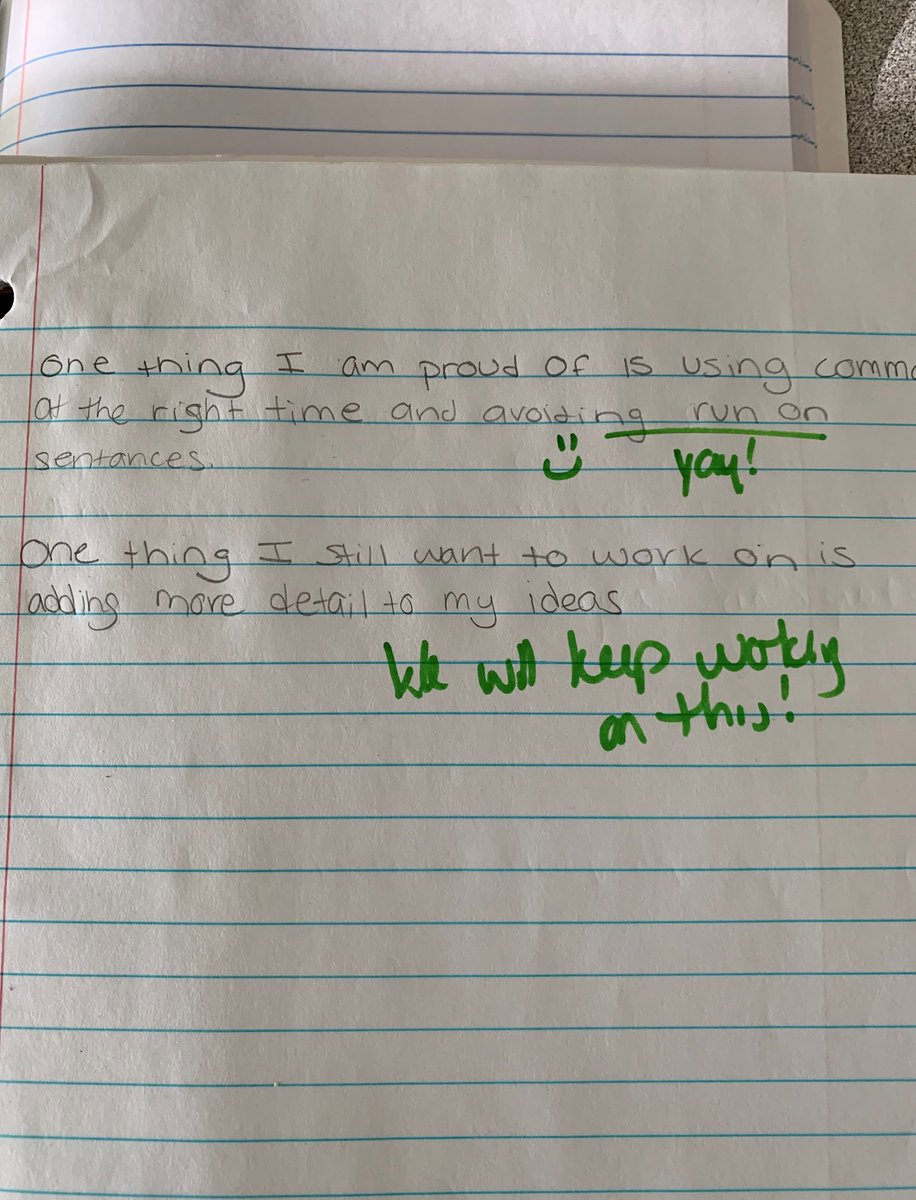 One thing I am proud of is using comma
at the right time and avoiding run on
sentances.
yay!
One thing I still want to work on is
adding more detail to my ideas
We will keep working
on this!